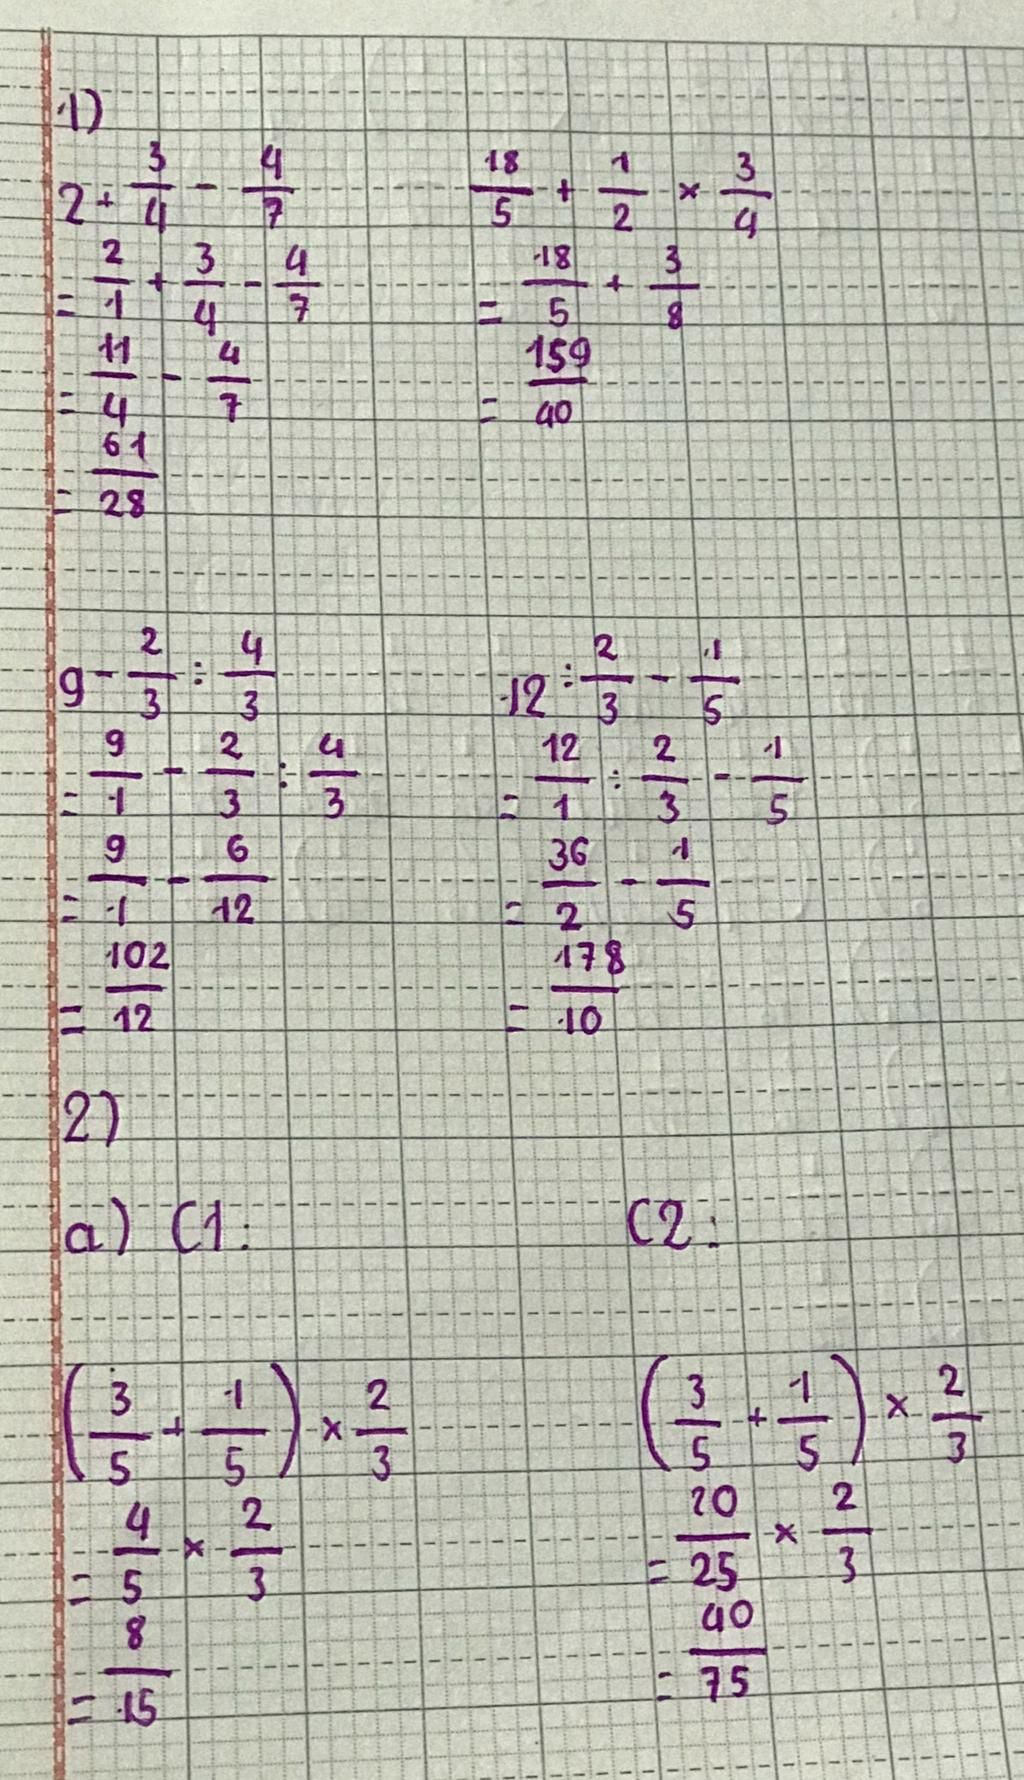 1)
2 + 3/4 - 4/7
= 2/1 + 3/4 - 4/7
= 11/4 - 4/7
= 61/28
18/5 + 1/2 × 3/4
= 18/5 + 3/8
= 159/40
9 - 2/3 : 4/3
= 9/1 - 2/3 : 4/3
= 9/1 - 6/12
= 102/12
12 : 2/3 - 1/5
= 12/1 : 2/3 - 1/5
= 36/2 - 1/5
= 178/10
2)
a) C1:
(3/5 + 1/5) × 2/3
= 4/5 × 2/3
= 8/15
C2:
(3/5 + 1/5) × 2/3
= 20/25 × 2/3
= 40/75